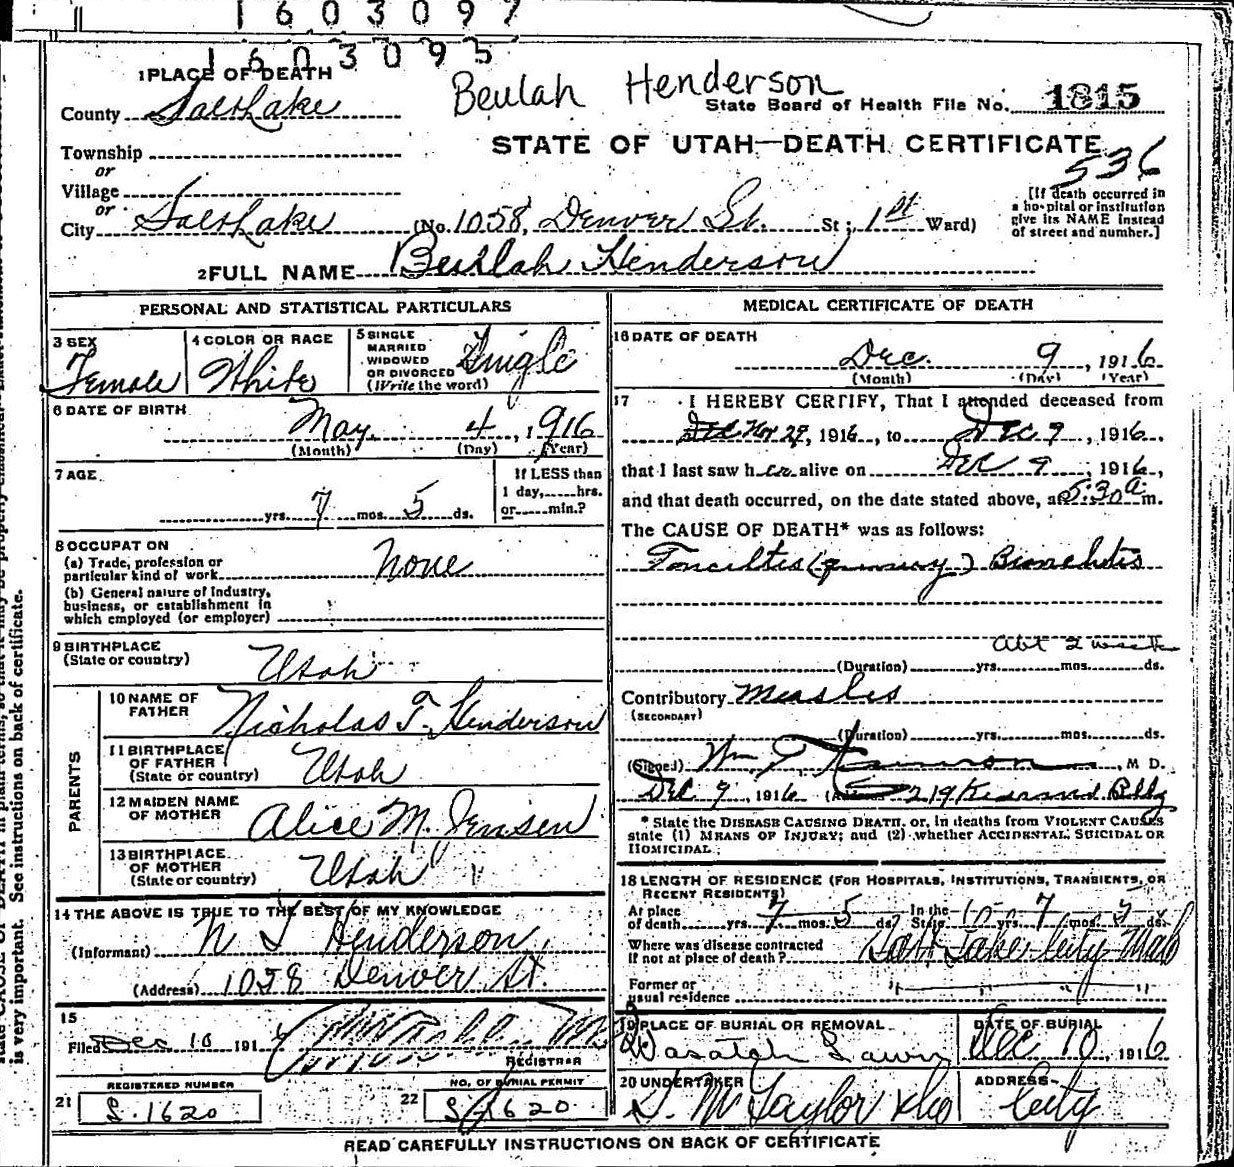 1603097
1603095
1 PLACE OF DEATH
Beulah Henderson
County Salt Lake
State Board of Health File No. 1815
STATE OF UTAH—DEATH CERTIFICATE
Township
or
Village
or
City Salt Lake (No. 1058, Denver St. St; 1st Ward)
536
[If death occurred in
a hospital or institution
give its NAME instead
of street and number.]
2 FULL NAME Beulah Henderson
PERSONAL AND STATISTICAL PARTICULARS
3 SEX
Female
4 COLOR OR RACE
White
5 SINGLE
MARRIED
WIDOWED
OR DIVORCED
(Write the word)
Single
6 DATE OF BIRTH
May 4, 1916
(Month) (Day) (Year)
7 AGE
yrs. 7 mos. 5 ds.
If LESS than
1 day, hrs.
or min.?
8 OCCUPATION
(a) Trade, profession or
particular kind of work None
(b) General nature of Industry,
business, or establishment in
which employed (or employer)
9 BIRTHPLACE
(State or country) Utah
PARENTS
10 NAME OF
FATHER Nicholas T. Henderson
11 BIRTHPLACE
OF FATHER
(State or country) Utah
12 MAIDEN NAME
OF MOTHER Alice M. Jensen
13 BIRTHPLACE
OF MOTHER
(State or country) Utah
14 THE ABOVE IS TRUE TO THE BEST OF MY KNOWLEDGE
(Informant) N T Henderson
(Address) 1058 Denver St.
15
Filed Dec 10 191
REGISTRAR
REGISTERED NUMBER
21 S. 1620
NO. OF BURIAL PERMIT
22 S 1620
MEDICAL CERTIFICATE OF DEATH
16 DATE OF DEATH
Dec. 9, 1916
(Month) (Day) (Year)
17 I HEREBY CERTIFY, That I attended deceased from
Dec Nov 29, 1916, to Dec 9, 1916,
that I last saw her alive on Dec 9, 1916,
and that death occurred, on the date stated above, at 5:30 a m.
The CAUSE OF DEATH* was as follows:
Toncilitis (quinsy) Bronchitis
Abt 2 weeks
(Duration) yrs. mos. ds.
Contributory Measles
(SECONDARY)
(Duration) yrs. mos. ds.
(Signed) Wm T , M D.
Dec 9, 1916 (Address) 219 Bldg
* State the DISEASE CAUSING DEATH, or, in deaths from VIOLENT CAUSES
state (1) MEANS OF INJURY; and (2) whether ACCIDENTAL, SUICIDAL OR
HOMICIDAL.
18 LENGTH OF RESIDENCE (FOR HOSPITALS, INSTITUTIONS, TRANSIENTS, OR
RECENT RESIDENTS)
At place
of death yrs. 7 mos. 5 ds. In the
State yrs. 7 mos. 5 ds.
Where was disease contracted
If not at place of death? Salt Lake City Utah
Former or
usual residence
19 PLACE OF BURIAL OR REMOVAL
Wasatch Lawn
DATE OF BURIAL
Dec 10, 1916
20 UNDERTAKER
S. M Taylor & Co
ADDRESS
City
READ CAREFULLY INSTRUCTIONS ON BACK OF CERTIFICATE
is very important. See instructions on back of certificate.